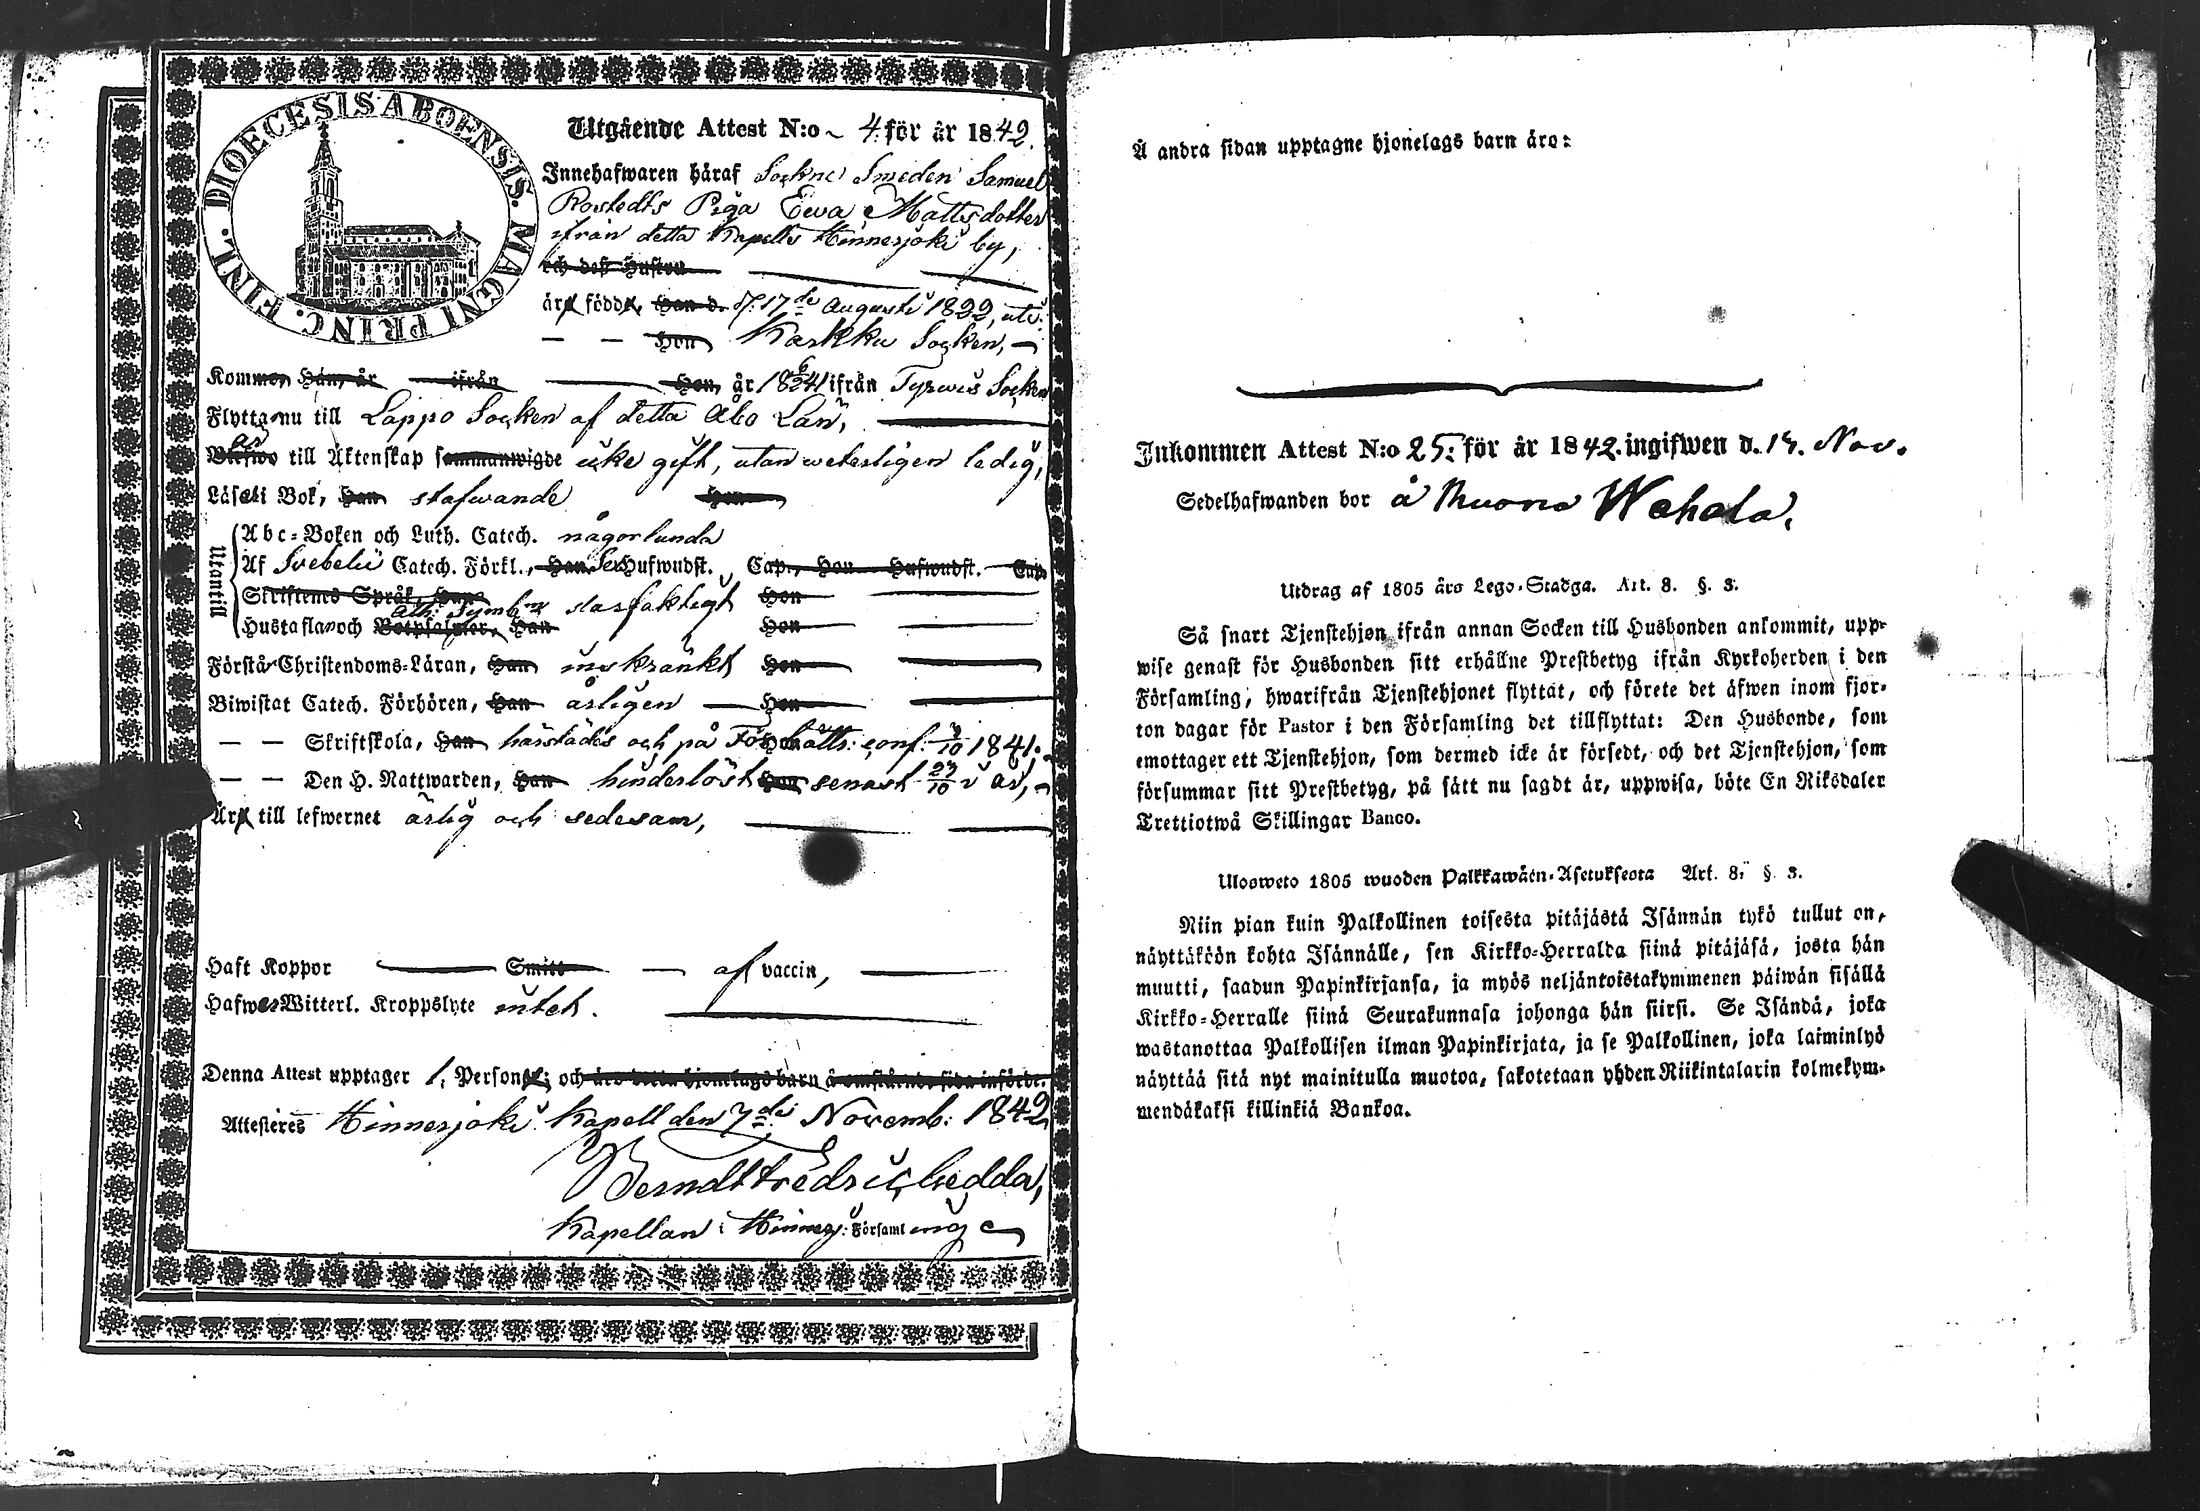 DIOECESIS ABOENSIS. MAGNI PRINC. FINL.
Utgående Attest N:o 4. för år 1842.
Innehafwaren häraf Sockne Smeden Samuel
Rostedts Piga Ewa Mattsdotter
ifrån detta Kapells Hinnerjoki by,
och deß Hustru
är född, Han d. 17de Augusti 1822, uti
Hon Karkku Socken,
Kommen Han, år ifrån Hon, år 1841 ifrån Tyrwis Socken
Flyttar nu till Lappo Socken af detta Åbo Län,
till Äktenskap sammanwigde icke gift, utan weterligen ledig,
Läser i Bok, Han stafwande Hon
Utantill
Abc-Boken och Luth. Catech. någorlunda
Af Svebelii Catech. Förkl., Han Sex Hufwudst. Cap., Hon Hufwudst. Cap.
Skriftenes Språk, Han Ath: Symb. slarfaktigt Hon
Hustaflan och Botpsalmer, Han Hon
Förstår Christendoms-Läran, Han inskränkt Hon
Biwistat Catech. Förhören, Han årligen Hon
— — Skriftskola, Han härstädes och på conf. 1841.
— — Den H. Nattwarden, Han hinderlöst Hon senast 23/10 i år,
Är till lefwernet ärlig och sedesam,
Haft Koppor Smitt af vaccin,
Hafwer Witterl. Kroppslyte intet.
Denna Attest upptager 1, Person; och äro detta hjonelags barn å omstående sida införde.
Attesteres Hinnerjoki Kapell den 7de Novemb: 1842
Berndt Fredric Gedda,
Kapellan i Hinnerj: Församling
Å andra sidan upptagne hjonelags barn äro:
Inkommen Attest N:o 25: för år 1842. ingifwen d. 14. Nov.
Sedelhafwanden bor å Muorio Wahala.
Utdrag af 1805 års Lego-Stadga. Art. 8. §. 3.
Så snart Tjenstehjon ifrån annan Socken till Husbonden ankommit, upp-
wise genast för Husbonden sitt erhållne Prestbetyg ifrån Kyrkoherden i den
Församling, hwarifrån Tjenstehjonet flyttat, och förete det äfwen inom fjor-
ton dagar för Pastor i den Församling det tillflyttat: Den Husbonde, som
emottager ett Tjenstehjon, som dermed icke är försedt, och det Tjenstehjon, som
försummar sitt Prestbetyg, på sätt nu sagdt är, uppwisa, böte En Riksdaler
Trettiotwå Skillingar Banco.
Ulosweto 1805 wuoden Palkkawäen-Asetuksesta Art. 8. § 3.
Niin pian kuin Palkollinen toisesta pitäjästä Isännän tykö tullut on,
näyttäköön kohta Isännälle, sen Kirkko-Herralda siinä pitäjäsä, josta hän
muutti, saadun Papinkirjansa, ja myös neljäntoistakymmenen päiwän sisällä
Kirkko-Herralle siinä Seurakunnasa johonga hän siirsi. Se Isändä, joka
wastanottaa Palkollisen ilman Papinkirjata, ja se Palkollinen, joka laiminlyö
näyttää sitä nyt mainitulla muotoa, sakotetaan yhden Riikintalarin kolmekym-
mendäkaksi killinkiä Bankoa.